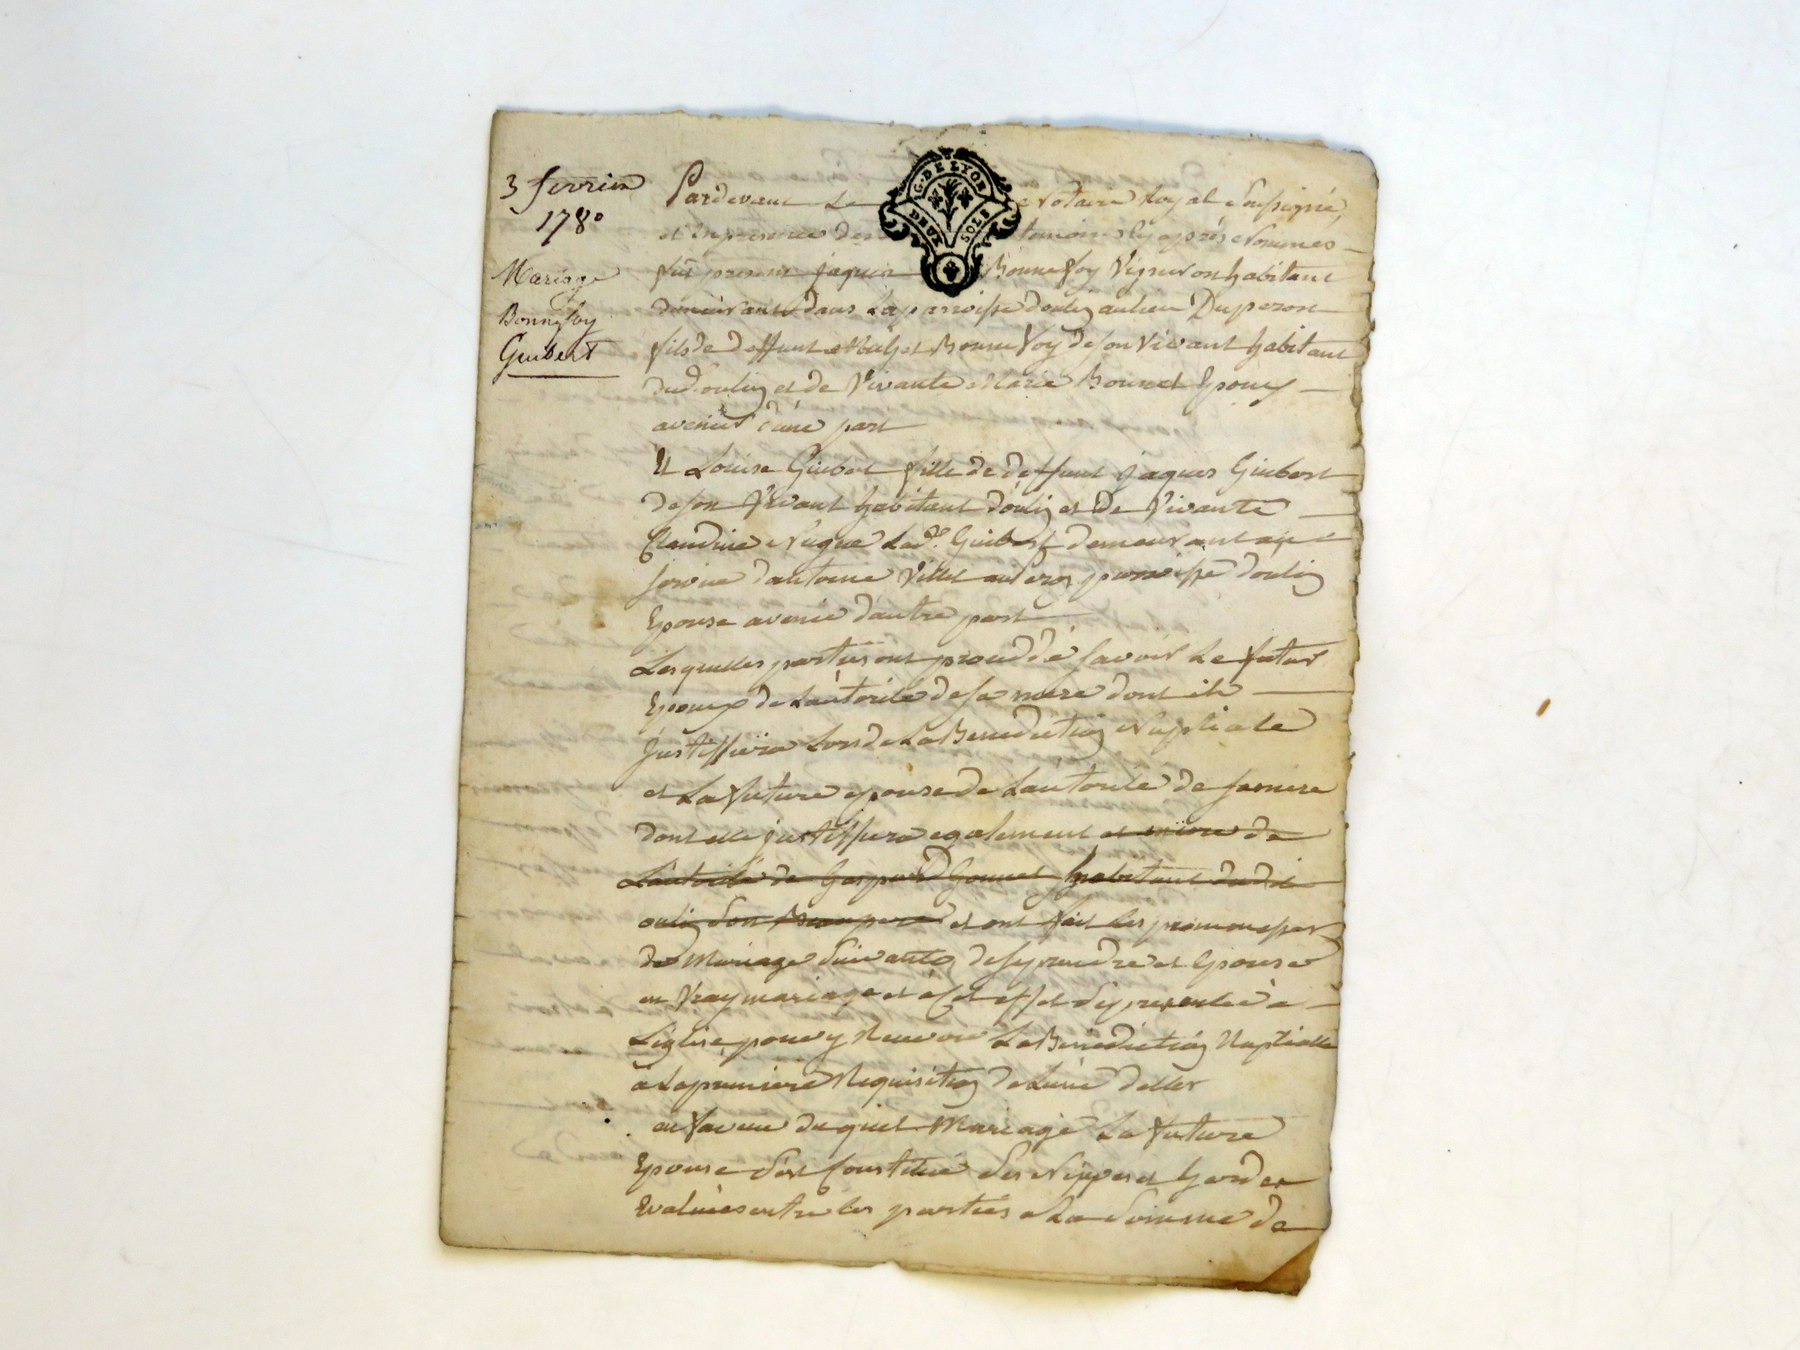 3 fevrier
1780
Mariage
Bonnefoy
Guibert
G. DE LYON
DEUX SOLS
Pardevant Le Notaire Royal Soussigné
et En presence des temoins Cy après Nommés
fut present jaques Bonnefoy Vigneron habitant
demeurant dans La parroisse doulin au lieu Duperon
fils de deffunt Bonnefoy de son Vivant habitant
dud. oulin et de Vivante Marie Bonnet Epoux
avenir d'une part
Et Louise Guibert fille de deffunt jaques Guibert
de son Vivant habitant d'oulin et De Vivante
Claudine Lad. Guibert demeurant au
service d'antoine parroisse doulin
Epouse avenir d'autre part
Lesquelles parties ont procedde savoir Le futur
Epoux de L'autorité de sa mere dont il
justiffiera Lors de La Benediction Nuptiale
et La future epouse de L'autorité de sa mere
dont elle justiffiera egalement et encore de
L'autorité de Gaspard Gonnet habitant dudit
oulin son et ont fait Les promesses
de Mariage Suivantes de se prendre et Epouser
en Vray mariage et a cet effet de se presenter à
L'eglise pour y Recevoir La Benediction Nuptialle
à La premiere Requisition de L'une delles
en faveur duquel Mariage La future
Epouse s'est Constitué ses Nippes et hardes
Evaluées entre les parties a La somme de